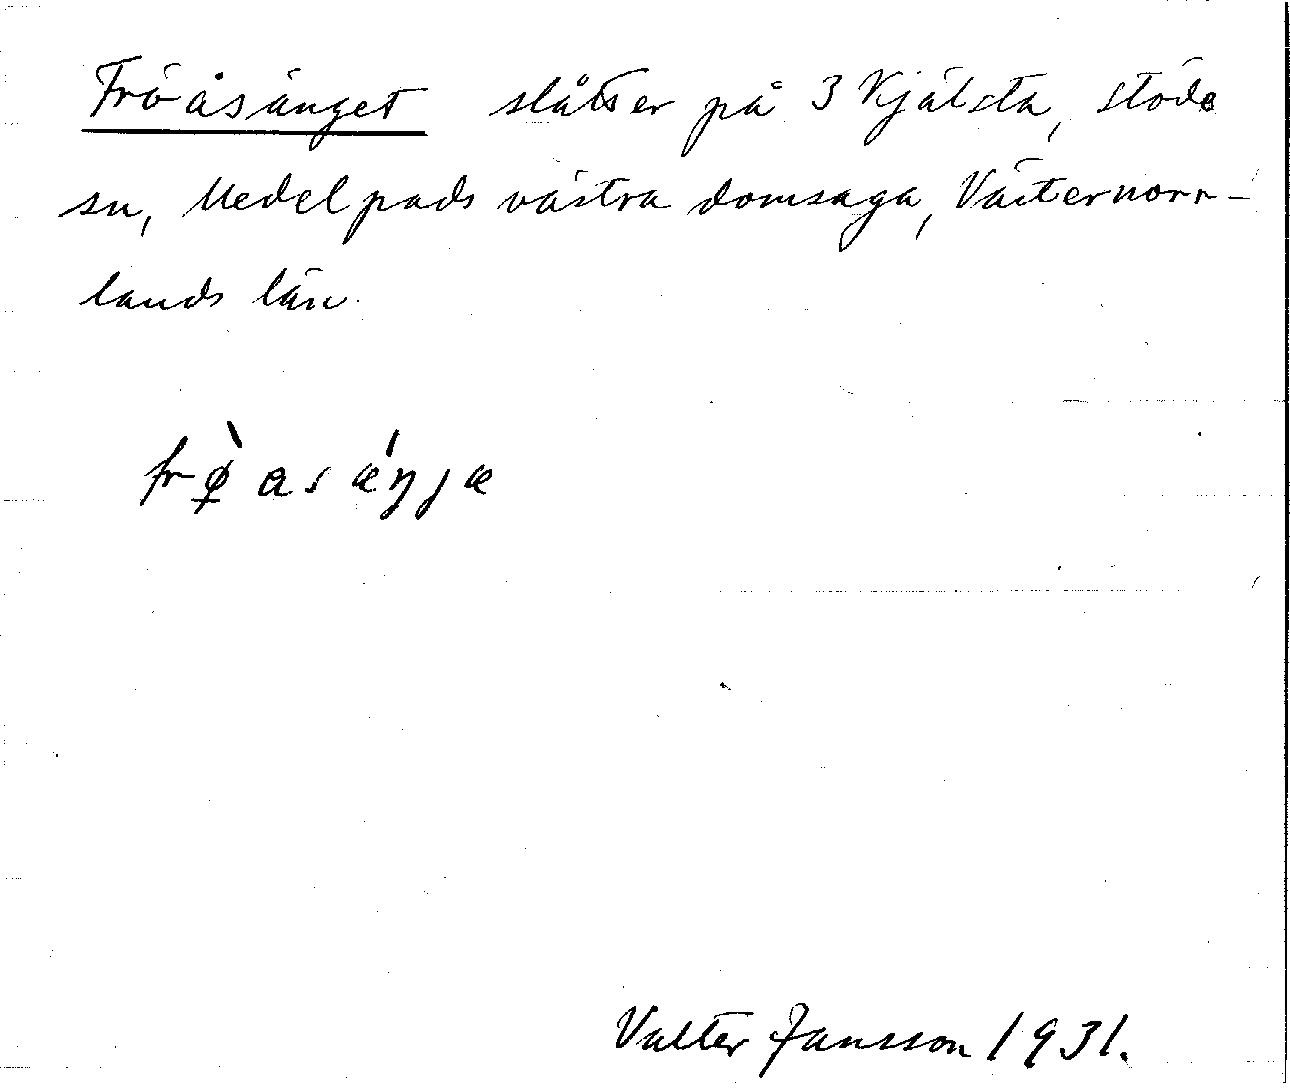 Fröåsänget slåtter på 3 Kjälsta, Stöde
sn, Medelpads västra domsaga, Västernorr-
lands län.
frø̀asǽŋjæ
Valter Jansson 1931.